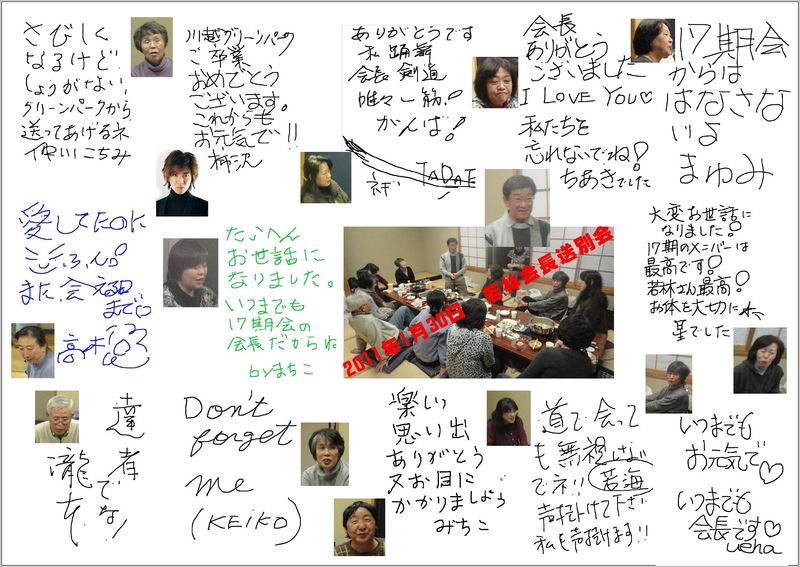 さびしく
なるけど
しょうがない
グリーンパークから
送ってあげるネ
川越グリーンパーク
ご卒業
おめでとう
ございます。
これからも
お元気で!!
柿沢
ありがとうです
私踊舞
会長剣道
唯々一筋!
がんば!
ネギ TADATE
会長
ありがとう
ございました
I LOVE YOU♡
私たちを
忘れないでネ!
ちあきでした
17期会
からは
はなさな
いよ
まゆみ
愛してたのに
また会える日
まで
高木
たいへん
お世話に
なりました。
いつまでも
17期会の
会長だからね
byまちこ
2011年1月30日 若林会長送別会
大変お世話に
なりました!
17期のメンバーは
最高です!
若林さん最高!
お体を大切に
星でした
達者
でな!
瀧
Don't
forget
me
(KEIKO)
楽しい
思い出
ありがとう
又お目に
かかりましょう
みちこ
道で会って
も無視
でネ!! 若海
声掛けて下さい
私も声掛けます!!
いつまでも
お元気で♡
いつまでも
会長です♡
ueha